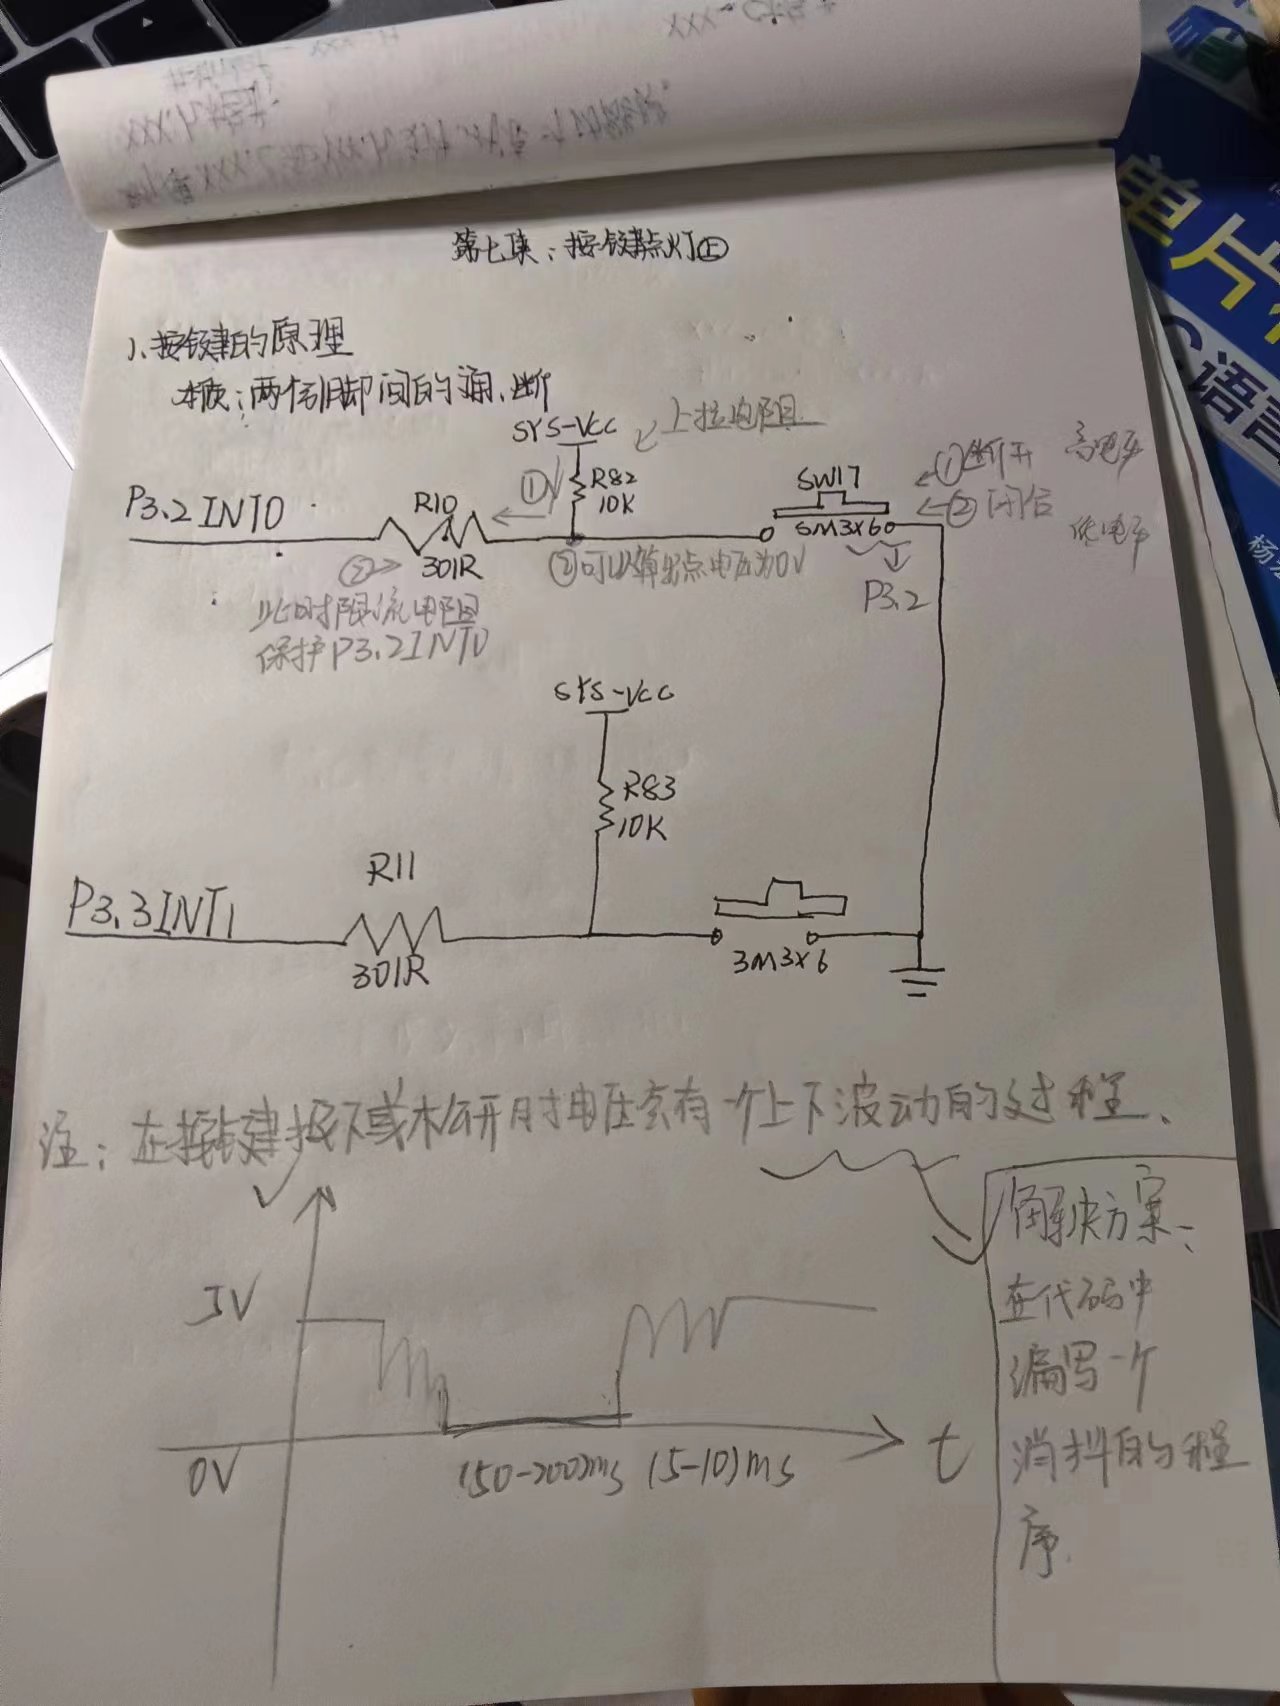 第七集：按键点灯㊤
1、按键的原理
本质：两个引脚间的通、断
SYS-VCC
上拉电阻
①
R82
10K
SW17
①断开 高电平
②闭合 低电平
P3.2 INT0
R10
301R
SM3X60
②可以算出点电压为0V
P3.2
②
此时限流电阻
保护P3.2INT0
SYS-VCC
R83
10K
R11
P3.3INT1
301R
3M3X6
注：在按键按下或松开时电压会有一个上下波动的过程.
解决方案：
在代码中
编写一个
消抖的程
序.
5V
0V
(50-200)ms (5-10)ms
t
单片
C语言
杨